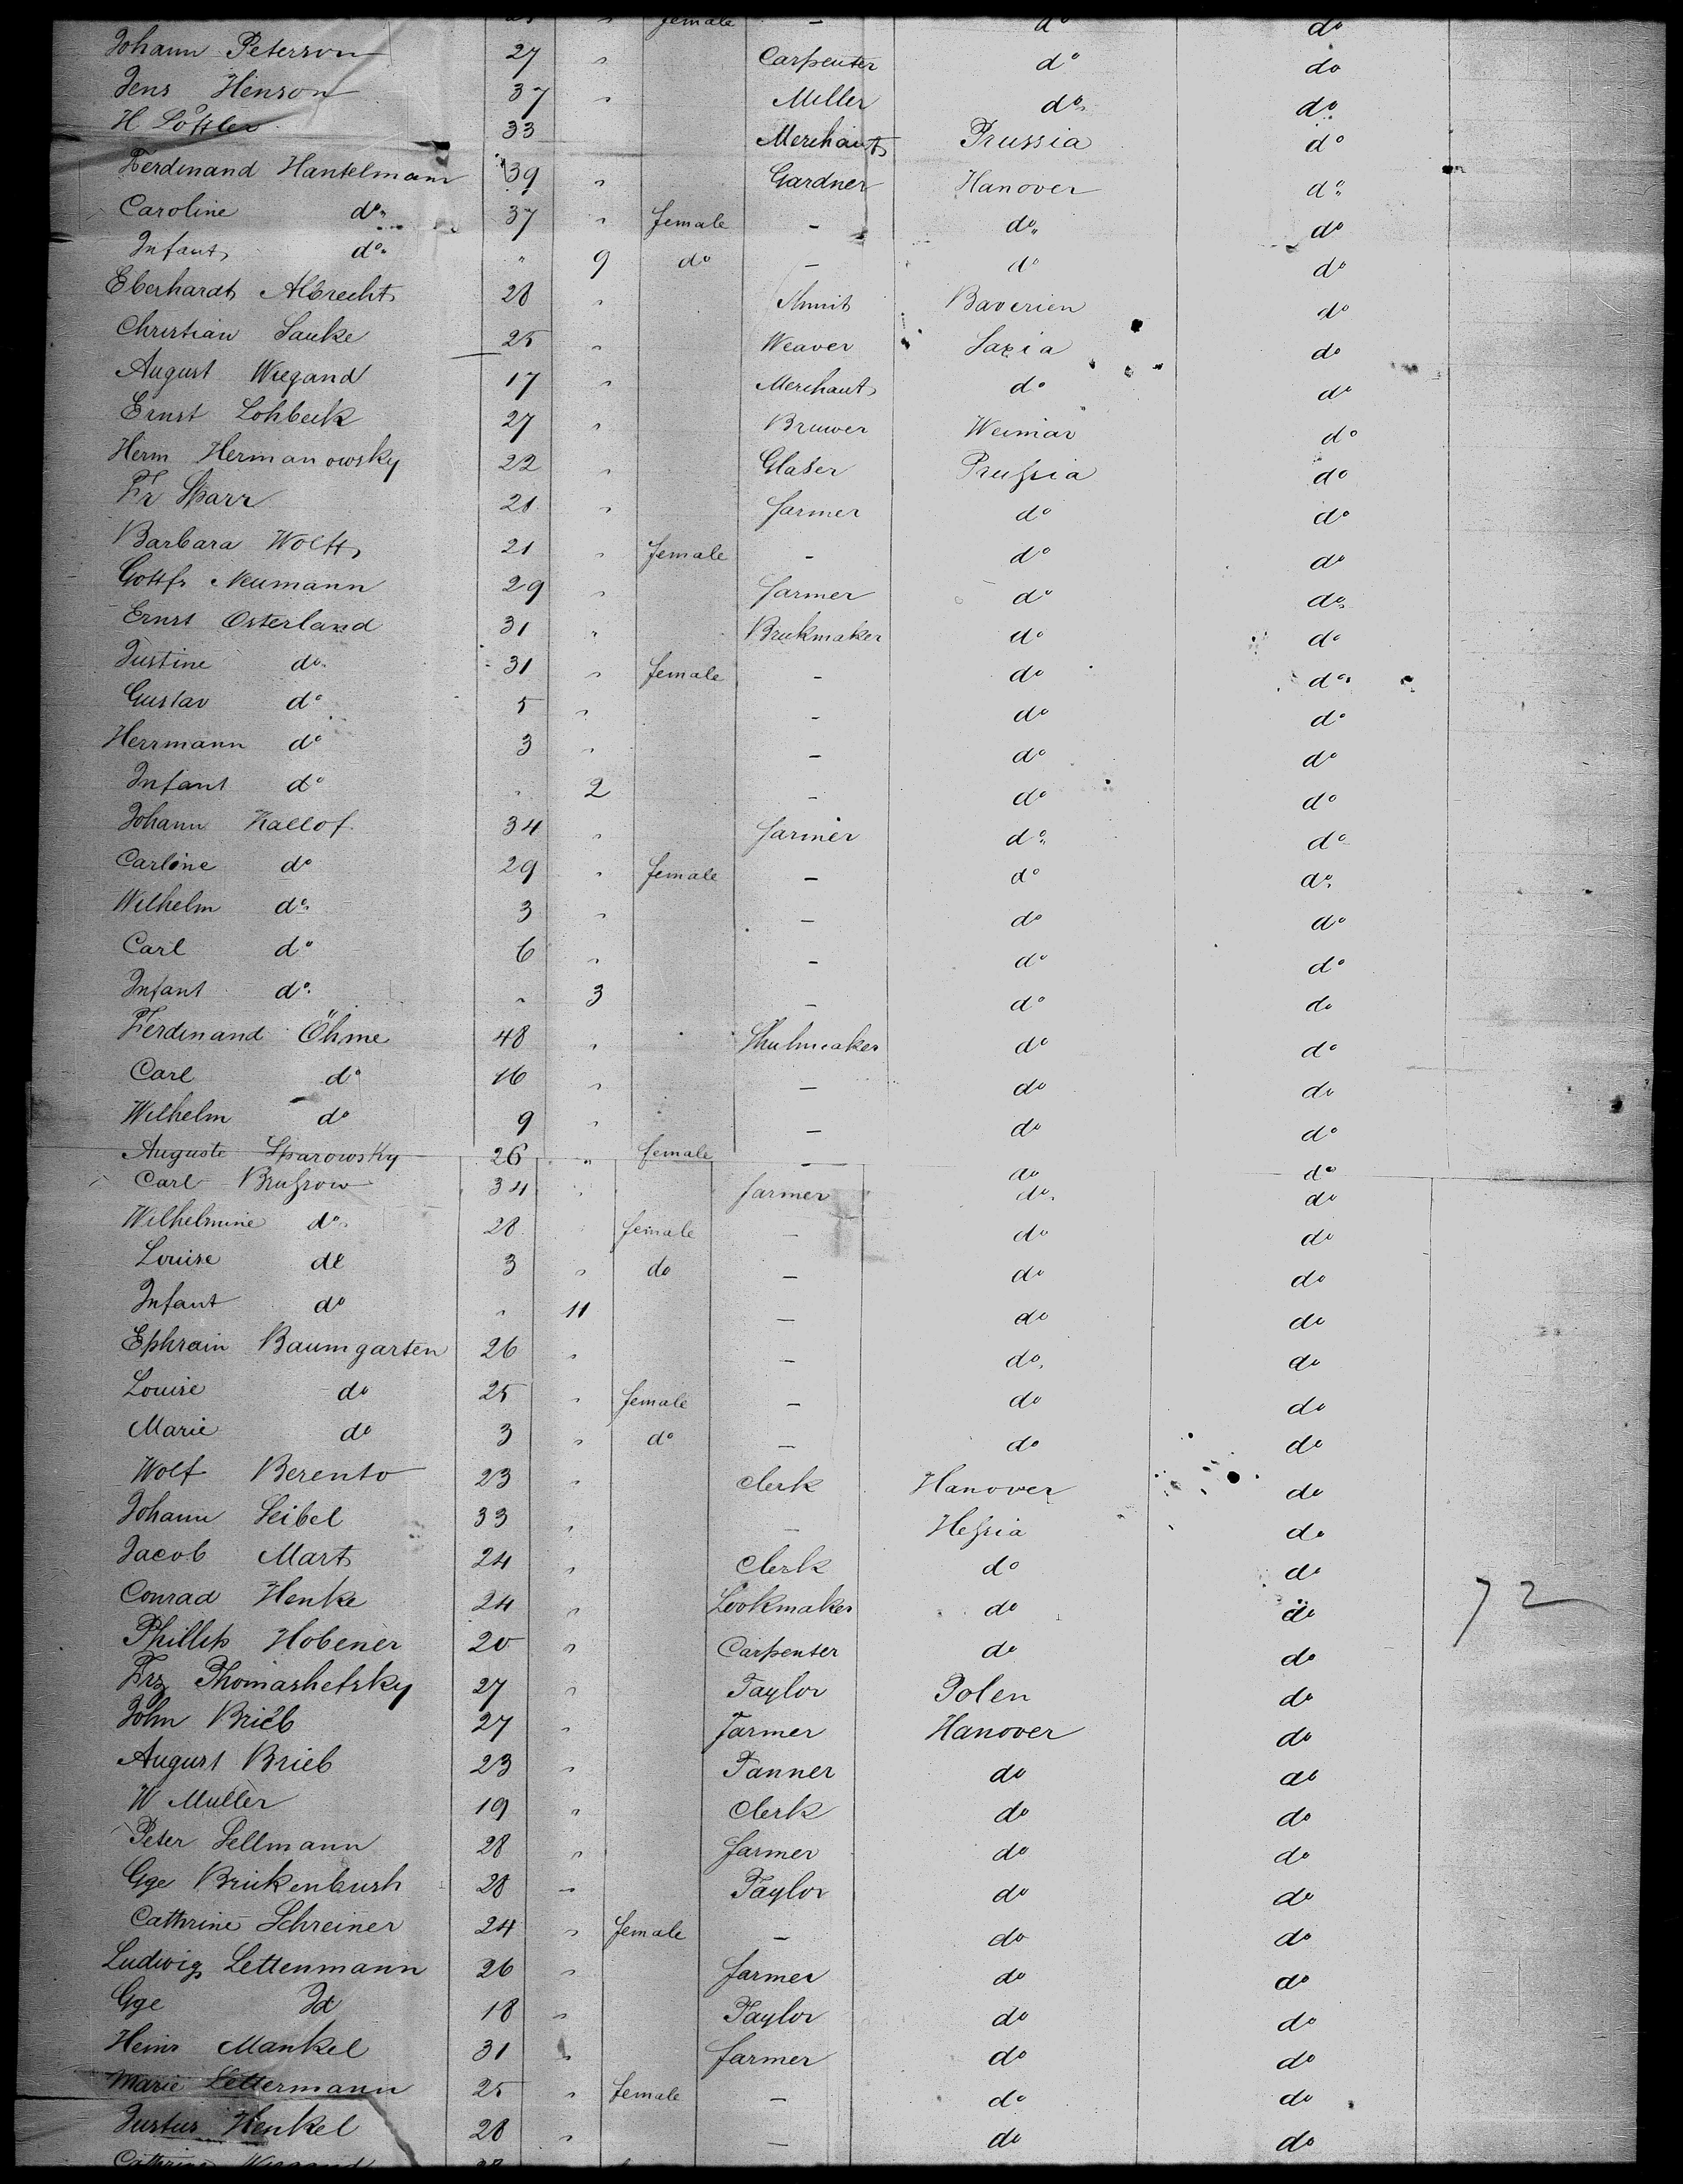 female - do do
Johann Peterson 27 " Carpenter do do
Jens Henson 37 " Miller do do
H Löffler 33 Merchant Prussia do
Ferdinand Hantelmann 39 " Gardner Hanover do
Caroline do 37 " female - do do
Infant do " 9 do - do do
Eberhardt Albrecht 28 " Baverien do
Christian Lauke 25 " Weaver Saxia do
August Wiegand 17 " Merchant do do
Ernst Lohbeck 27 " Bruwer Weimar do
Herm Hermanowsky 22 " Glaser Prussia do
Fr Sparr 21 " farmer do do
Barbara Wolff 21 " female - do do
Gottfr Neumann 29 " farmer do do
Ernst Osterland 31 " Brickmaker do do
Justine do 31 " female - do do
Gustav do 5 " - do do
Herrmann do 3 " - do do
Infant do " 2 - do do
Johann Kallof 34 " farmer do do
Carline do 29 " female - do do
Wilhelm do 3 " - do do
Carl do 6 " - do do
Infant do " 3 - do do
Ferdinand Öhme 48 " Shuhmaker do do
Carl do 16 " - do do
Wilhelm do 9 " - do do
Auguste Sparowsky 26 " female - do do
Carl Brussow 34 " farmer do do
Wilhelmine do 28 female - do do
Louise do 3 " do - do do
Infant do " 11 - do do
Ephrain Baumgarten 26 " - do do
Louise do 25 " female - do do
Marie do 3 " do - do do
Wolf Berento 23 " Clerk Hanover do
Johann Seibel 33 " - Hessia do
Jacob Mart 24 " Clerk do do
Conrad Henke 24 " Lookmaker do do
Phillip Hobener 20 " Carpenter do do
72
Frz Thomashefsky 27 " Taylor Polen do
John Brieb 27 " Farmer Hanover do
August Brieb 23 " Tanner do do
W Muller 19 " Clerk do do
Peter Sellmann 28 " farmer do do
Gge Brickenbush 28 " Taylor do do
Cathrine Schreiner 24 " female - do do
Ludwig Lettenmann 26 " farmer do do
Gge Id 18 " Taylor do do
Heinr Mankel 31 " farmer do do
Marie Lettermann 25 " female - do do
Justus Henkel 28 " - do do
Cathrine